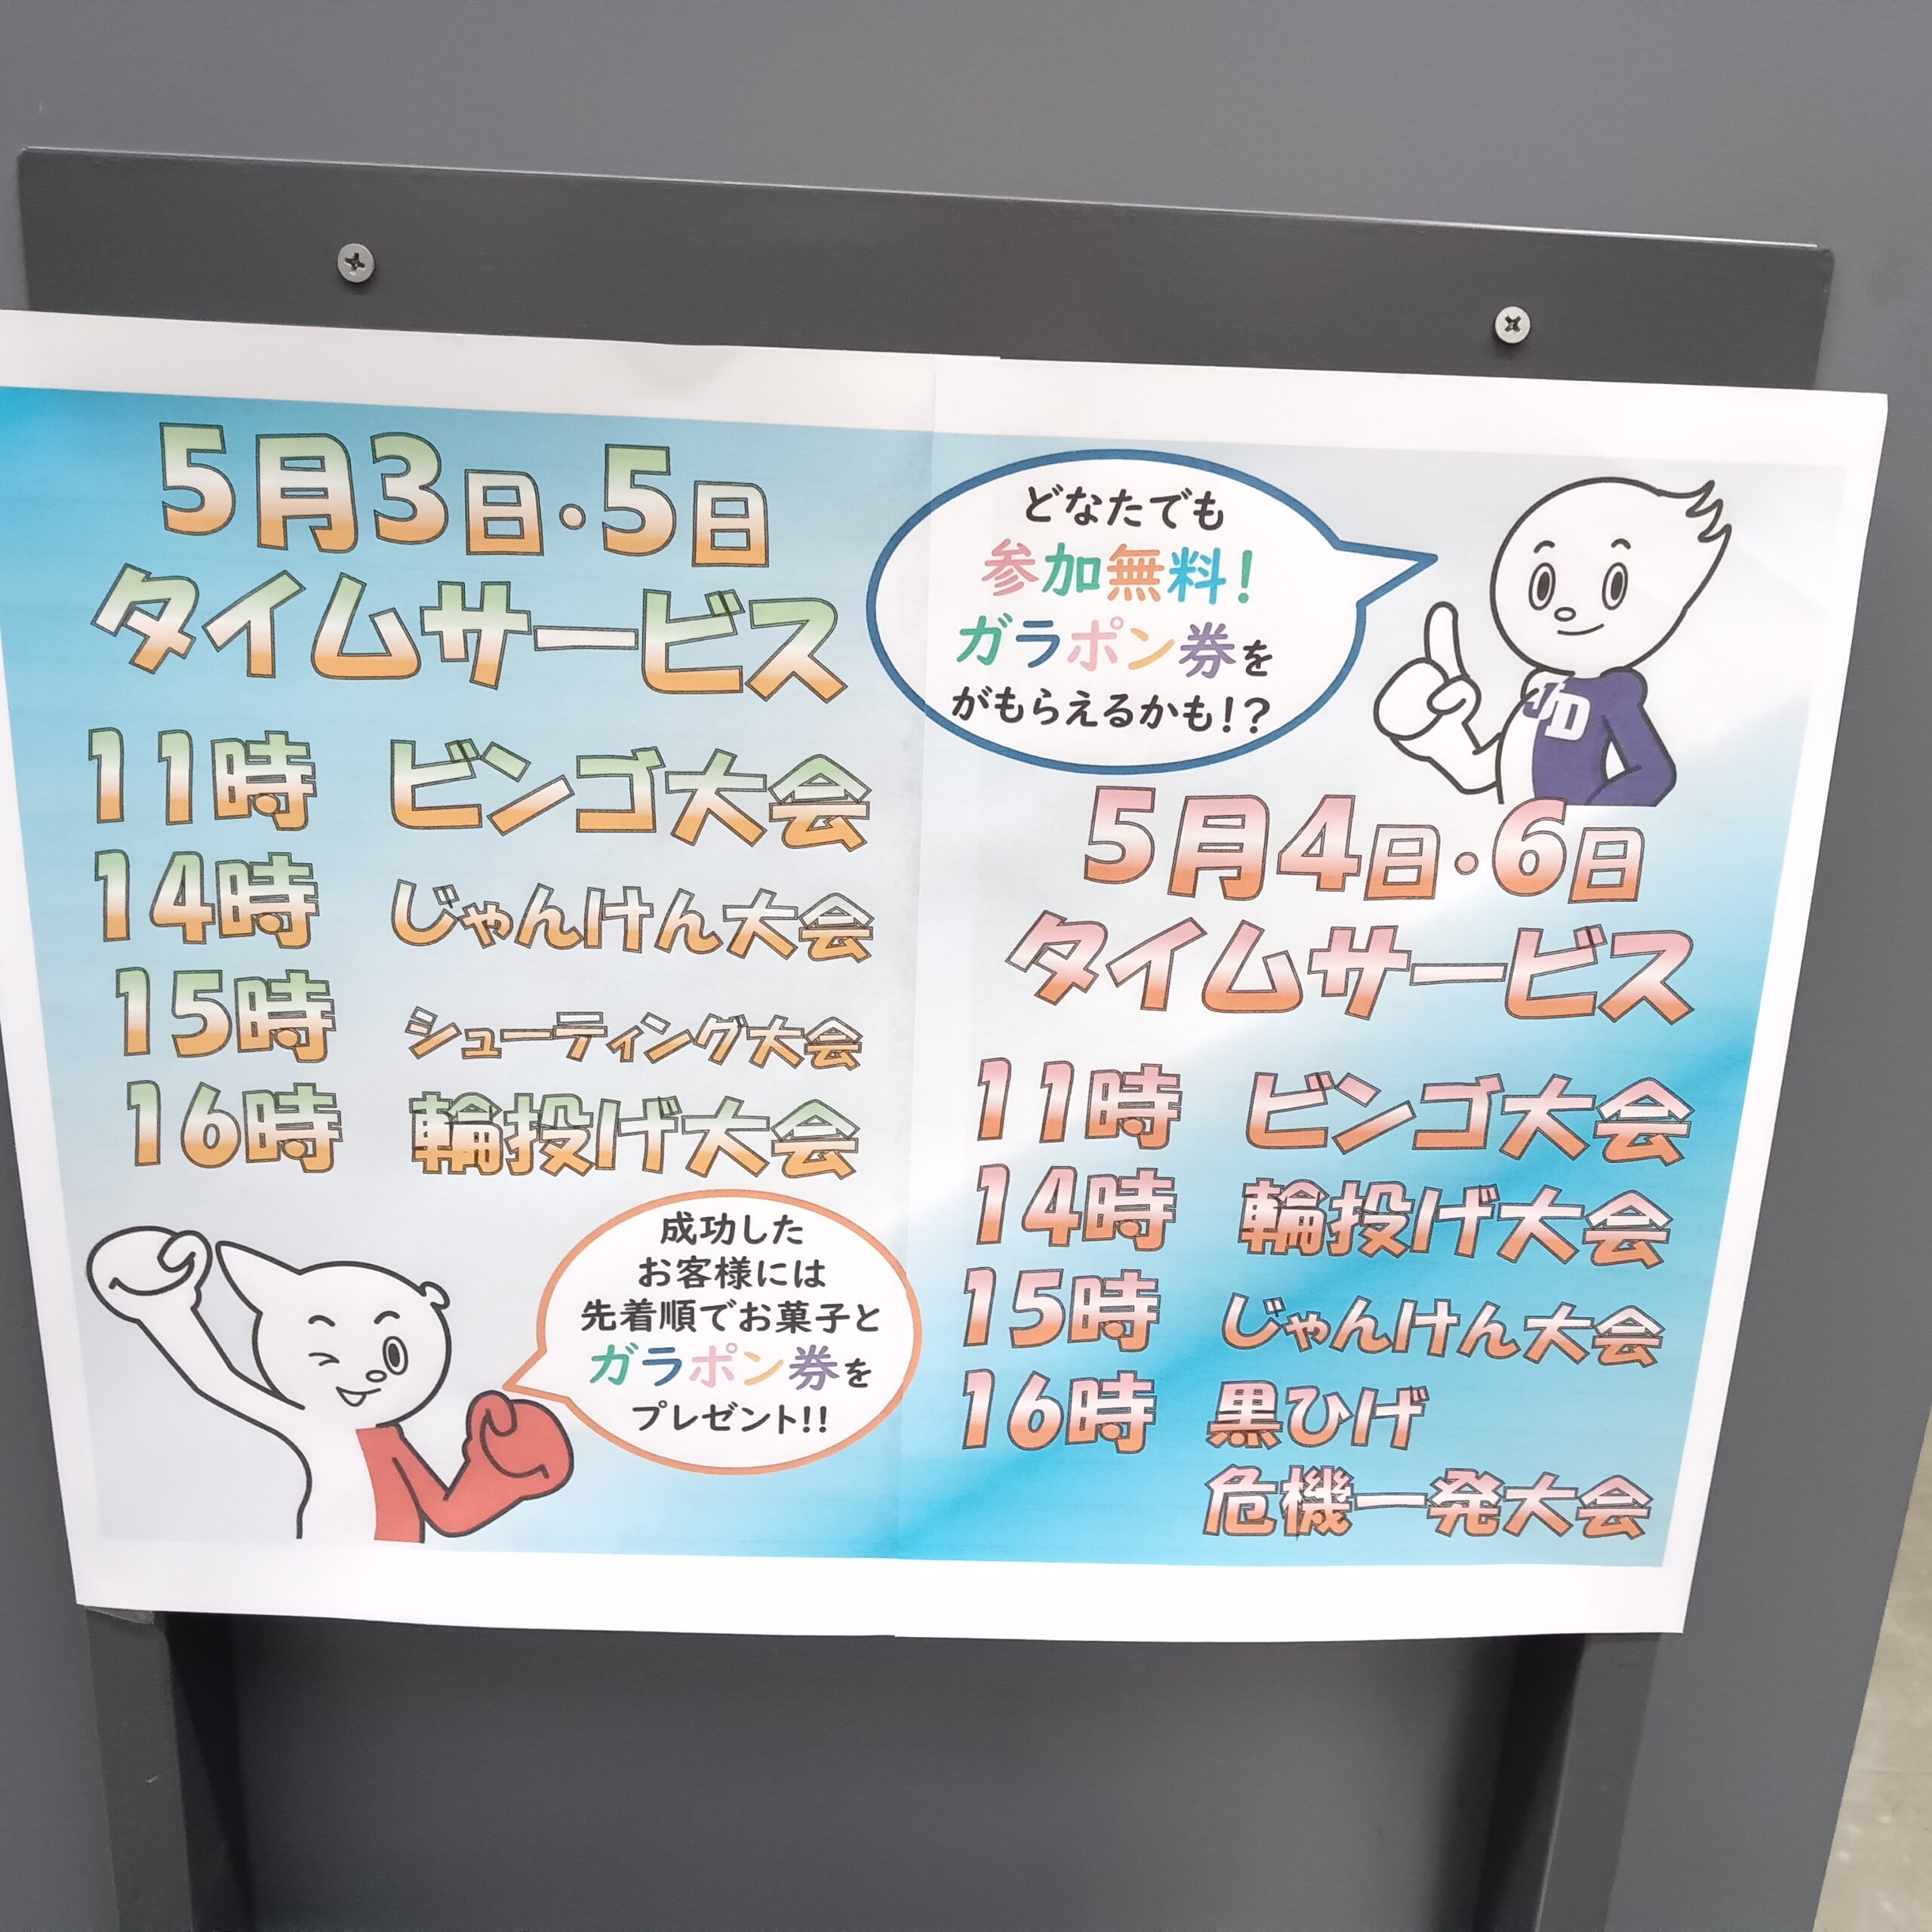 5月3日・5日
タイムサービス
11時 ビンゴ大会
14時 じゃんけん大会
15時 シューティング大会
16時 輪投げ大会
成功した
お客様には
先着順でお菓子と
ガラポン券を
プレゼント!!
どなたでも
参加無料!
ガラポン券を
がもらえるかも!?
JD
5月4日・6日
タイムサービス
11時 ビンゴ大会
14時 輪投げ大会
15時 じゃんけん大会
16時 黒ひげ
危機一発大会